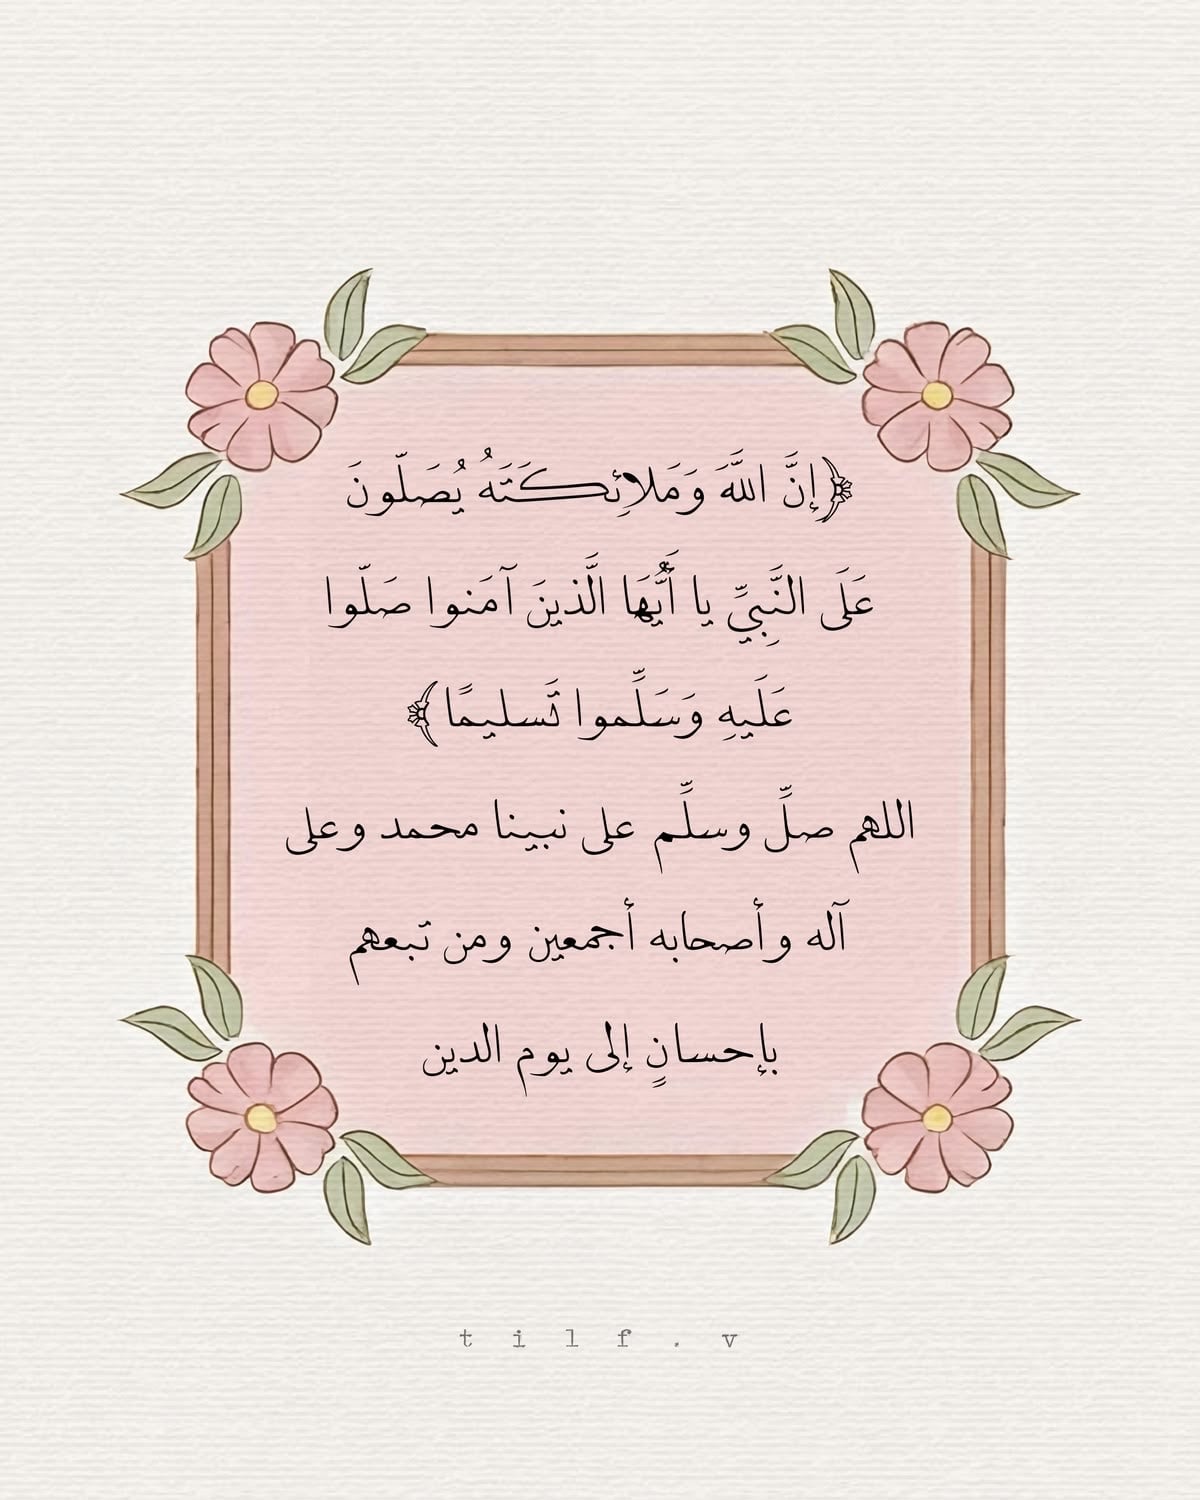 ﴿إِنَّ اللَّهَ وَمَلائِكَتَهُ يُصَلّونَ
عَلَى النَّبِيِّ يا أَيُّهَا الَّذينَ آمَنوا صَلّوا
عَلَيهِ وَسَلِّموا تَسليمًا﴾
اللهم صلِّ وسلِّم على نبينا محمد وعلى
آله وأصحابه أجمعين ومن تبعهم
بإحسانٍ إلى يوم الدين
t i l f . v